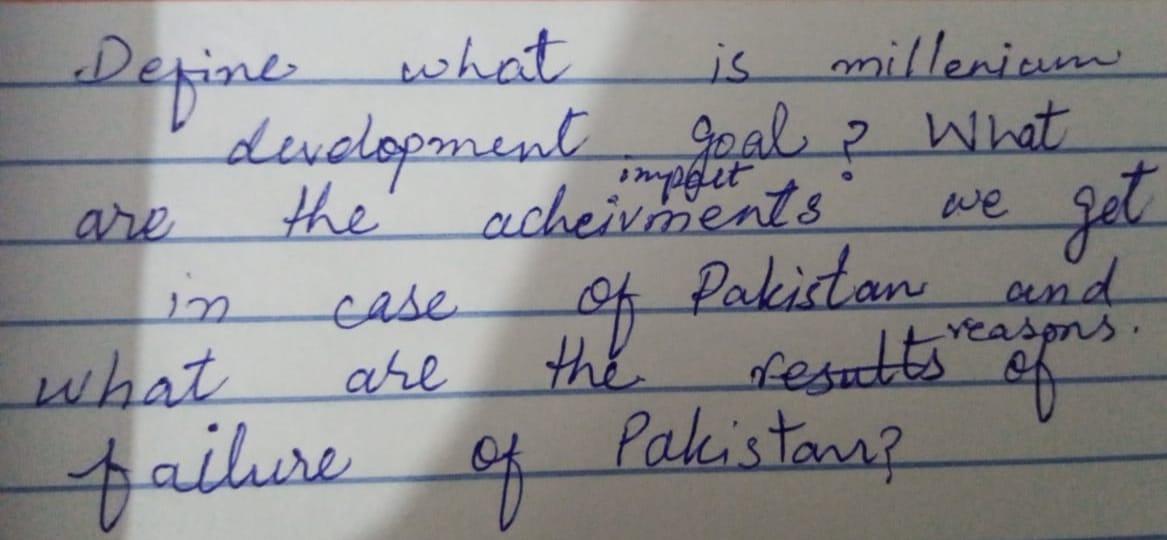 Define what is millenium
devdopment goal? What
impact
are the acheivments we get
in case of Pakistan and
reasons.
what are the results of
failure of Pakistan?